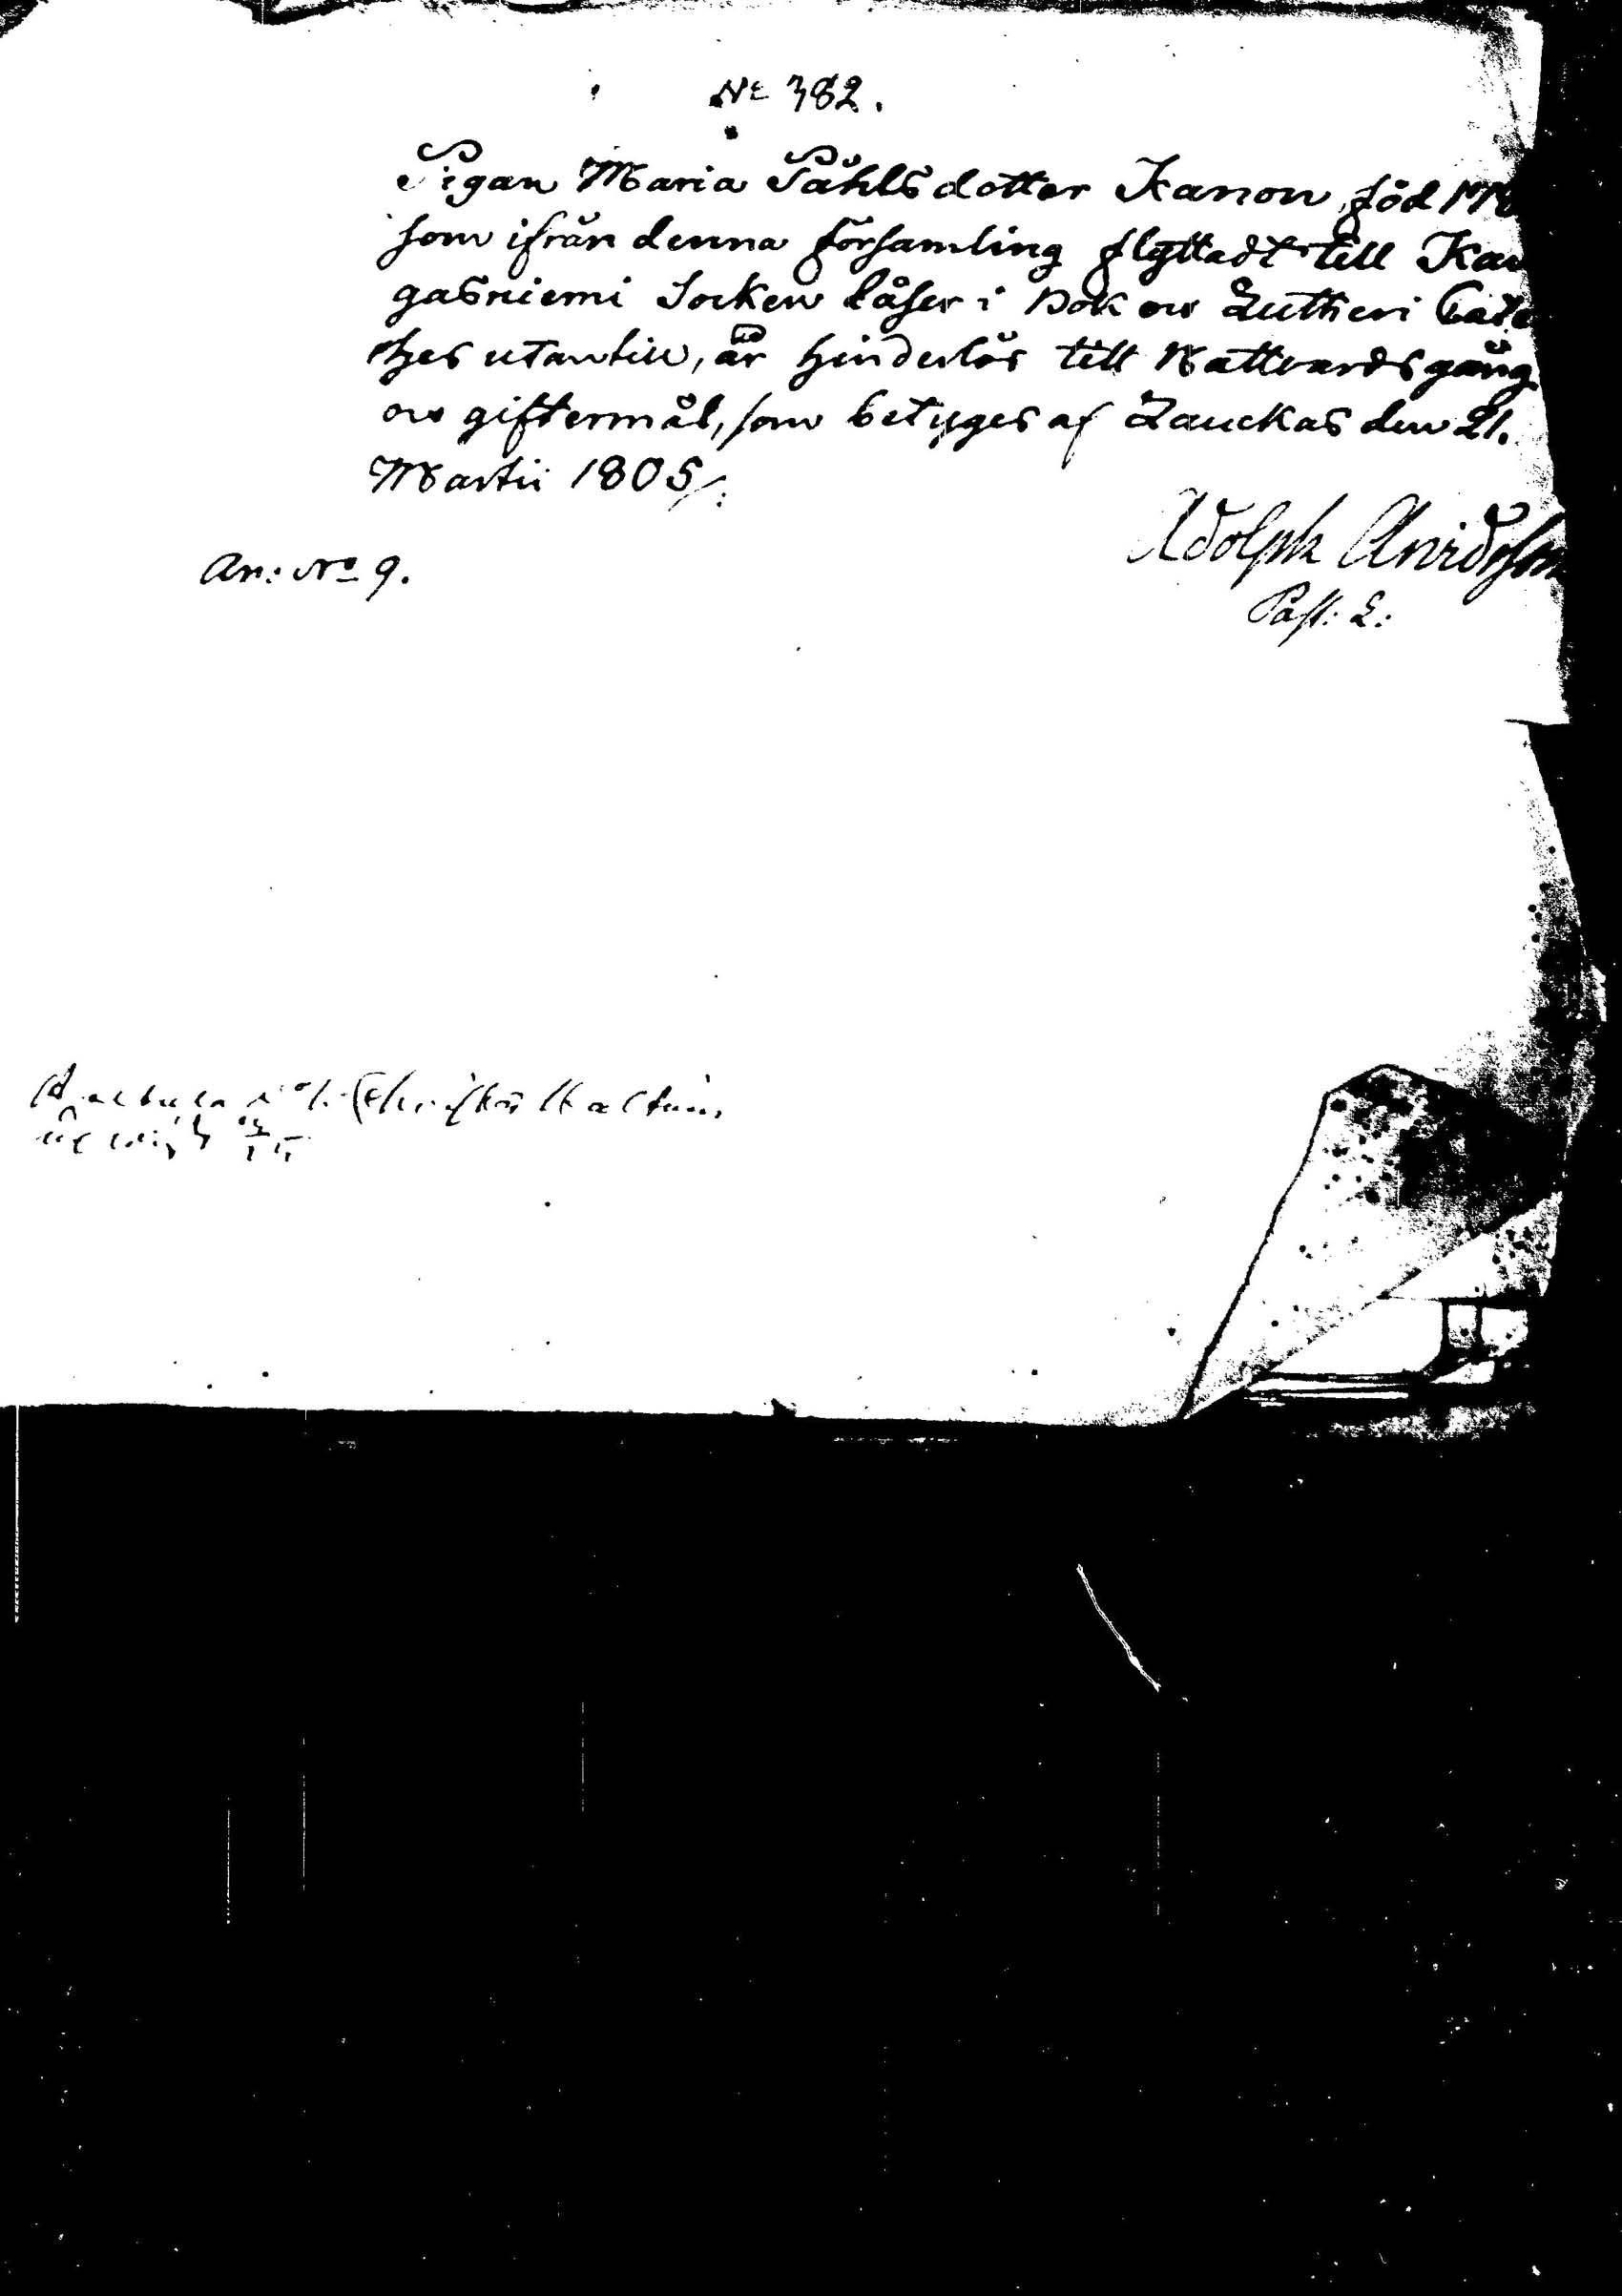 No 382.
Pigan Maria Påhlsdotter Kanon, föd
som ifrån denna församling flyttadt till Kan
gasniemi Socken låser i Bok ow Lutheri Cate
ches utantill, är hinderlös till Nattvardsgång
ow giftermål, som betyges af Lauckas den 21.
Martii 1805/:
An: No 9.
Adolph Arvidsson
Past: L: